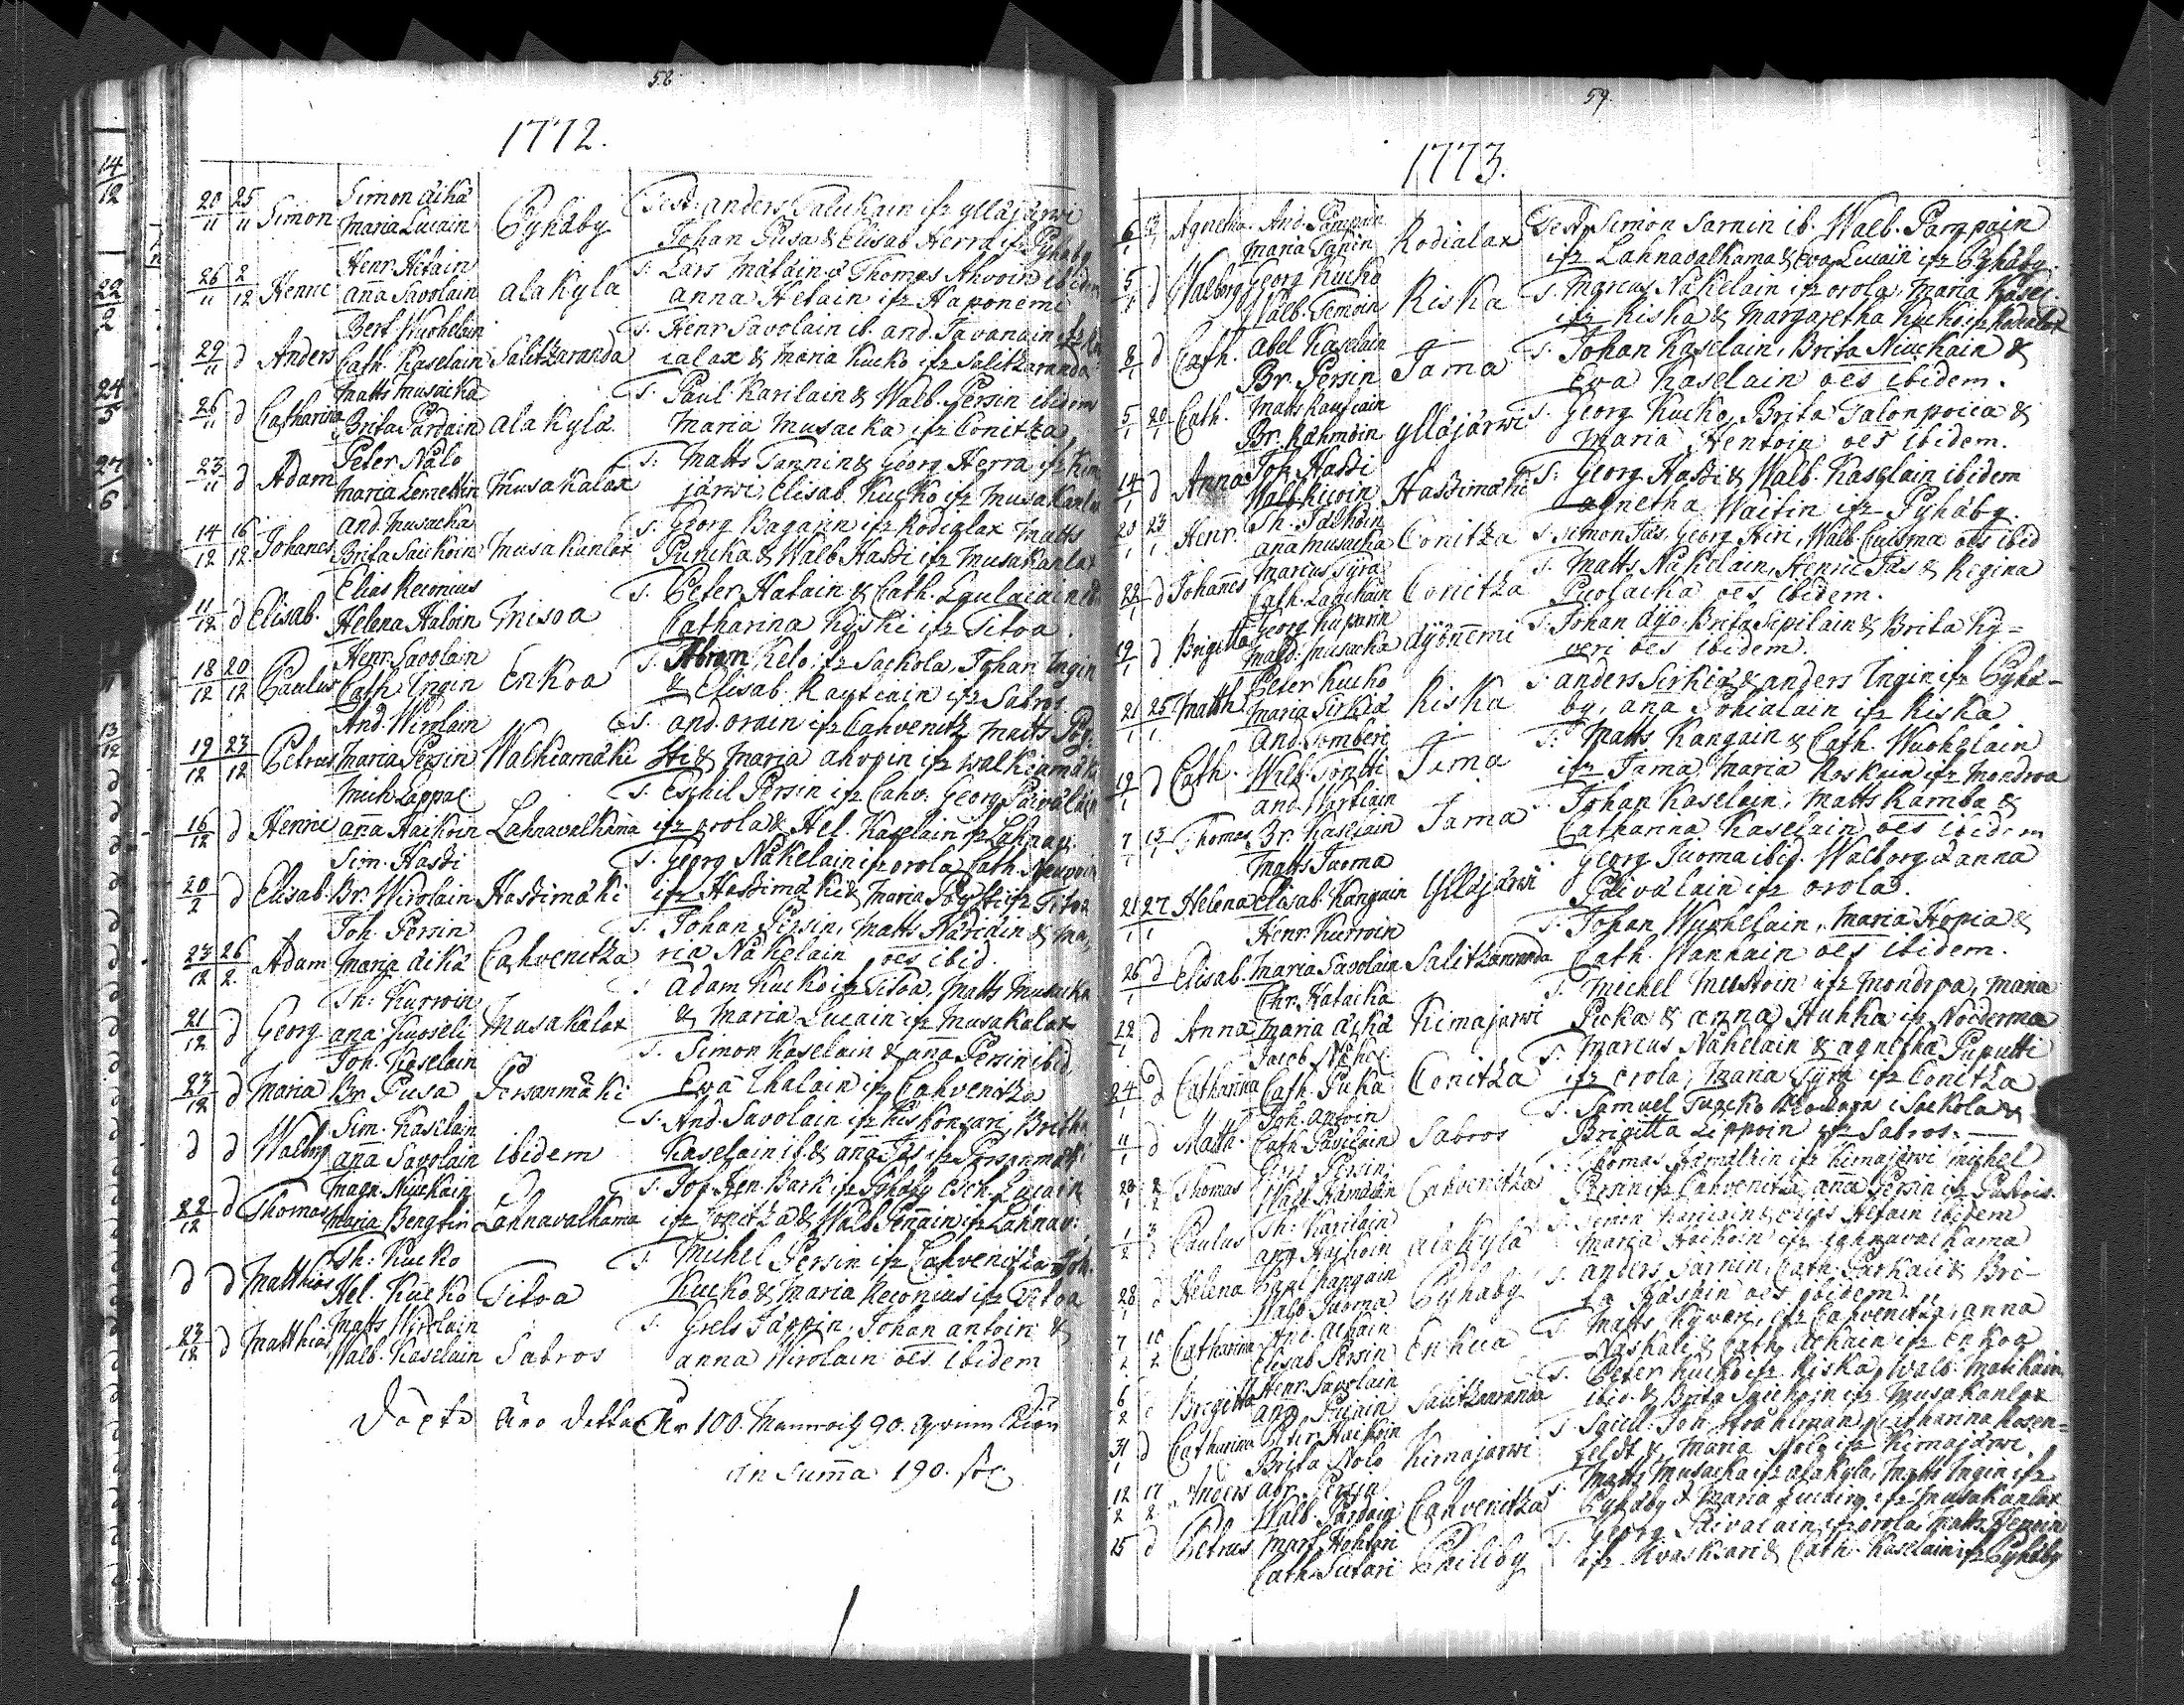 58
1772.
20/11 25/11 Simon Simon Äikä
Maria Lucain Pyhäby Test: Anders Talukain ifr Ylläjärwi
Johan Pusa & Elisab. Herra ifr Pyhäby
26/11 2/12 Henric Henr. Hetain
Anna Savolain Alakylä T. Lars Mälain & Thomas Ahvoin ibidem
Anna Hetain ifr Haponemi
29/11 d Anders Bert. Wuohelain
Cath. Kaselain Salitzaranda T. Henr Savolain ib. And. Tavanain ifr
ialax & Maria Kucko ifr Salitzaranda
26/11 d Catharina Matts Musacka
Brita Pardain Alakylä T. Paul Karilain & Walb. Persin ibidem
Maria Musacka ifr Conitza
23/11 d Adam Peter Nålo
Maria Lemettin Musakalax T: Matts Tannin & Georg Herra ifr Kima
järwi, Elisab. Kucko ifr Musakanla
14/12 16/12 Johanes And. Musacka
Brita Saickoin Musakanlax T. Georg Bagain ifr Rodialax Matts
Puncka & Walb. Hassi ifr Musakanlax
11/12 d Elisab. Elias Reconius
Helena Haloin Misoa T. Peter Hatain & Cath. Laulaiain
Catharina Kyski ifr Titoa.
18/12 20/12 Paulus Henr. Savolain
Cath. Ingin Enkoa T. Abram Kelo ifr Sackola, Johan Ingin
& Elisab. Rautiain ifr Sabros
19/12 23/12 Petrus And. Wirolain
Maria Persin Walkiamäki T. And. Orain ifr Cahvenitz Matts Pöy-
sti & Maria Ahvoin ifr Walkiamäki
16/12 d Henric Mich. Lappal
Anna Haikoin Lahnavalkama T. Eschil Persin ifr Cahv. Georg Päiväläin
ifr Orola & Hel. Kaselain ifr Lahnav.
20/2 d Elisab. Sim. Hassi
Br. Wirolain Hassimäki T. Georg Näkelain ifr Orola Cath. Neuvoin
ifr Hassimäki & Maria Pöysti ifr Titoa
23/12 26/2. Adam Joh. Persin
Maria Äikä Cahvenitza T. Johan Persin, Matts Näriäin & Ma-
ria Näkelain oes ibid.
21/12 d Georg Th: Kurwin
Ana Kuoseli Musakalax T. Adam Kucko ifr Titoa, Matts Musacka
& Maria Lucain ifr Musakalax
23/12 d Maria Joh. Kaselain
Br. Pusa Persanmäki T. Simon Kaselain & Aña Persin ibid
Eva Ihalain ifr Cahvenitza
d d Walborg Sim. Kaselain
Aña Savolain ibidem T. And. Savolain ifr Kiskonsari Britha
Kaselain ib. & Aña Jäs ifr Persanmäki
22/12 d Thomas Magn. Niuckain
Maria Bengtin Lahnavalkama ifr Conitza & Walb. ifr Lahnav:
d d Matthias Th: Kucko
Hel. Kucko Titoa T. Michel Persin ifr Cahvenitza Joh.
Kucko & Maria Reconius ifr Titoa
23/12 d Matthias Matts Wirolain
Walb. Kaselain Sabros T. Grels Jäppin, Johan Antoin &
Anna Wirolain oes ibidem
Döpte äro detta åhr 100. Mannkiön 90. Qvinnkiön
in Summa 190. st
59.
1773.
6/1 d Agnetha And. Pärnpain
Maria Sanin Rodialax Test. Simon Sarnin ib. Walb. Pärnpain
ifr Lahnavalkama & Eva Lucain ifr Pyhäby.
5/1 d Walborg Georg Kucko
Walb. Simoin Riska T. Marcus Näkelain ifr Orola, Maria Kasel.
ifr Riska & Margaretha Kucko ifr Rodialax
8/1 d Cath. Abel Kaselain
Br. Persin Jama T. Johan Kaselain, Brita Niuckain &
Eva Kaselain oes ibidem.
5/1 20/1 Cath. Matts Rautiain
Br. Rähmöin Yllajärwi T. Georg Kucko, Brita Talonpoica &
Maria Hentoin oes ibidem.
14/1 d Anna Joh. Hassi
Walb. Kicoin Hassimäki T. Georg Hassi & Walb. Kaselain ibidem
Agnetha Waitin ifr Pyhäby.
23/1 Henr. Th. Jäskoin
Aña Musacka Conitza T. Simon Jäs, Georg Hiri, Walb. Cuisma oes ibid
22/1 d Johanes Marcus Tyrä
Cath. Conitza T. Matts Näkelain, Henric Jäs & Regina
Puolacka oes ibidem.
19/1 d Brigitta Georg Kuparin
Magd. Musacka Äyönemi T. Johan Äyö, Brita Sipilain & Brita Ky-
veri oes ibidem.
21/1 25/1 Matth. Peter Kucko
Maria Sirkiä Riska T. Anders Sirkiä & Anders Ingin ifr Pyhä-
by, Ana Pohialain ifr Riska
19/1 d Cath. And. Somberi
Walb. Tontti Jama T: Matts Kangain & Cath. Wuohelain
ifr Jama, Maria Roskain ifr Mondroa
7/1 13/1 Thomas And. Wartiain
Br. Kaselain Jama T. Johan Kaselain, Matts Ramba &
Catharina Kaselain oes ibidem
21/1 27/1 Helena Matts Tuoma
Elisab. Kangain Yllajärwi Georg Tuoma ibid. Walborg & Anna
Päivälain ifr Orola.
26/1 d Elisab. Henr. Kurroin
Maria Savolain Salitzaranda T. Johan Wuohelain, Maria Hopia &
Cath. Wannain oes ibidem.
12/1 d Anna Chr. Hatacka
Maria Äikä Kimajarwi T. Michel Mustoin ifr Mondroa, Maria
Picka & Anna Hukka ifr Noiderma
24/1 d Catharina Jacob Näkel.
Cath. Picka Conitza T. Marcus Näkelain & Agnetha Puputti
ifr Orola, Maria Tyrä ifr Conitza
11/1 d Matth. Joh. Antoin
Cath. Pasilain Sabros T. Samuel i Sackola &
Brigitta Lippoin ifr Sabros.
Thomas Persin
Cahvenitza Thomas Hämälain ifr Kimajärwi Michel
Persin ifr Cahvenitza, Aña Persin ifr
Paulus Th: Karilain
Ana Haikoin Alakylä T. Simon Hetain ibidem
Maria Haikoin ifr Lahnavalkama
28/1 d Helena Paul Kangain
Walb. Tuoma Pyhäby T. Anders Sarnin, Cath. & Bri-
ta oes ibidem.
7/2 10/2 Catharina And. Ackain
Elisab Persin Enkua T. Matts Kyveri ifr Cahvenitza, Anna
Naskali & Cath. Ackain ifr Enkoa
6/2 Brigitta Henr. Savolain
Salitzaranda T. Peter Kucko ifr Riska, Walb. Matikain
ibid. & Brita Saickoin ifr Musakanlax
31/1 d Catharina Peter Haikoin
Brita Nolo Kimajarwi T. Joh. Stråhlman, Catharina Rosen-
feldt & Maria Nolo ifr Kimajärwi.
12/2 17/2 Anders Abr. Persin
Walb. Pardain Cahvenitza T. Matts Musacka ifr Alakyla, Matts Ingin ifr
Pyhäby & Maria Lucain ifr Musakanlax
15 d Petrus Mart. Hohtari
Cath. Sutari Philiby T. Georg Päivälain ifr Orola Matts
ifr & Cath. Kaselain ifr Pyhäby